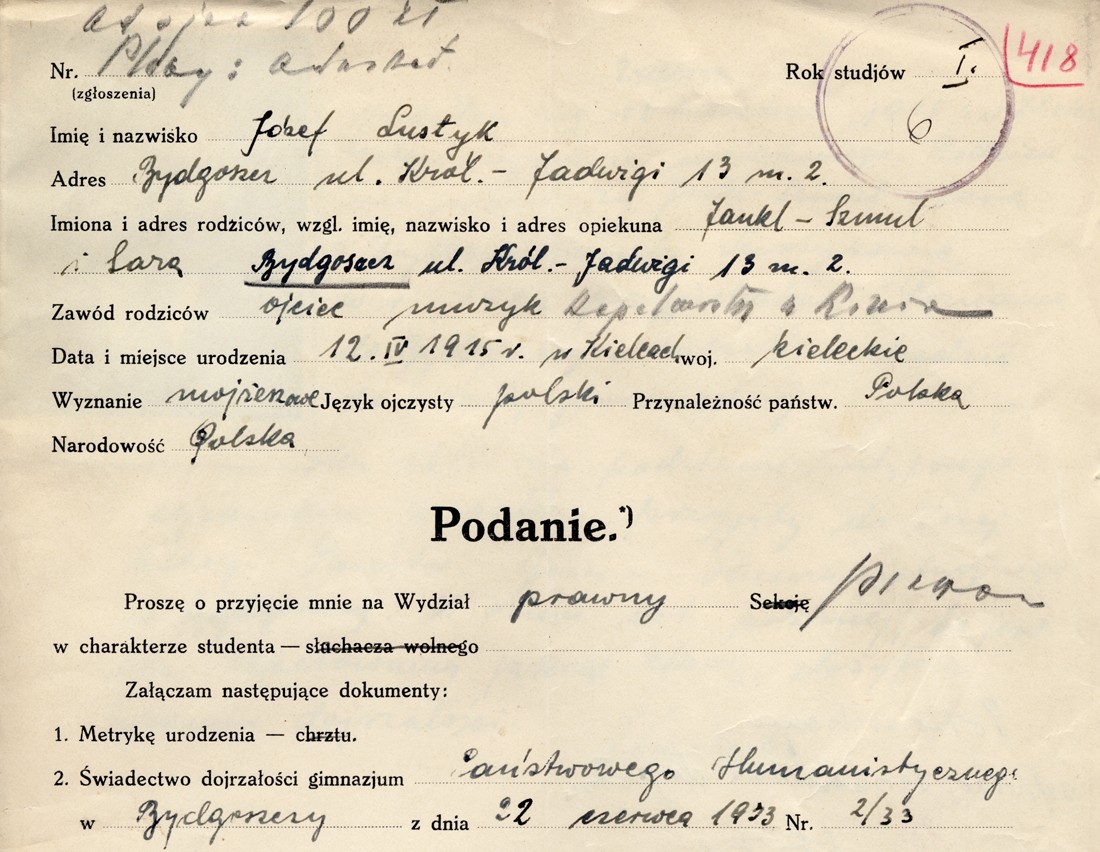 100 zł
Nr.
(zgłoszenia)
Rok studjów I. 418
6
Imię i nazwisko Józef Lustyk
Adres Bydgoszcz ul. Król.- Jadwigi 13 m. 2.
Imiona i adres rodziców, wzgl. imię, nazwisko i adres opiekuna Jankl - Szmul
i Sara Bydgoszcz ul. Król.- Jadwigi 13 m. 2.
Zawód rodziców ojciec muzyk
Data i miejsce urodzenia 12. IV 1915 r. w Kielcach woj. kieleckie
Wyznanie mojżeszowe Język ojczysty polski Przynależność państw. Polska
Narodowość Polska
Podanie.*)
Proszę o przyjęcie mnie na Wydział prawny Sekcję
w charakterze studenta — słuchacza wolnego
Załączam następujące dokumenty:
1. Metrykę urodzenia — chrztu.
2. Świadectwo dojrzałości gimnazjum Państwowego Humanistycznego
w Bydgoszczy z dnia 22 czerwca 1933 Nr. 2/33